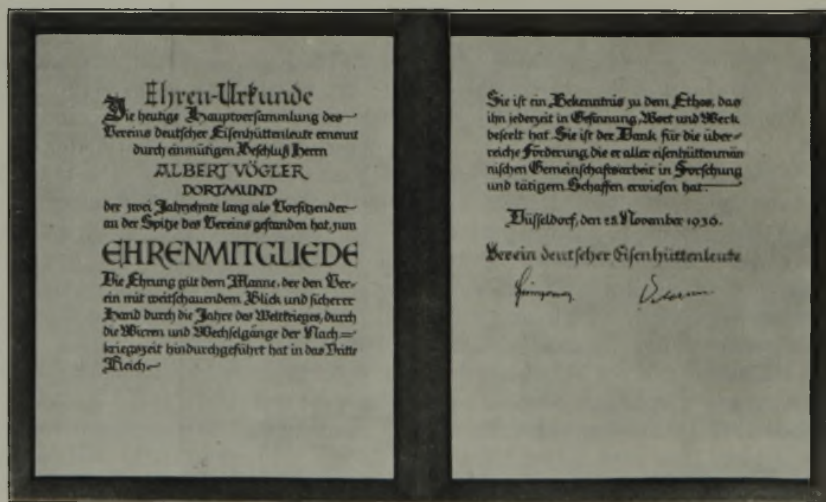 Ehren-Urkunde
Die heutige Hauptversammlung des
Vereins deutscher Eisenhüttenleute ernennt
durch einmütigen Beschluß Herrn
ALBERT VÖGLER
DORTMUND
der zwei Jahrzehnte lang als Vorsitzender
an der Spitze des Vereins gestanden hat, zum
EHRENMITGLIEDE
Die Ehrung gilt dem Manne, der den Ver-
ein mit weitschauendem Blick und sicherer
Hand durch die Jahre des Weltkrieges, durch
die Wirren und Wechselgänge der Nach-
kriegszeit hindurchgeführt hat in das Dritte
Reich.
Sie ist ein Bekenntnis zu dem Ethos, das
ihn jederzeit in Gesinnung, Wort und Werk
beseelt hat. Sie ist der Dank für die über-
reiche Förderung, die er aller eisenhüttenmän
nischen Gemeinschaftsarbeit in Forschung
und tätigem Schaffen erwiesen hat.
Düsseldorf, den 28. November 1936.
Verein deutscher Eisenhüttenleute